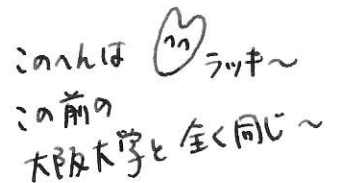 このへんは ラッキ〜
この前の
大阪大学と全く同じ〜